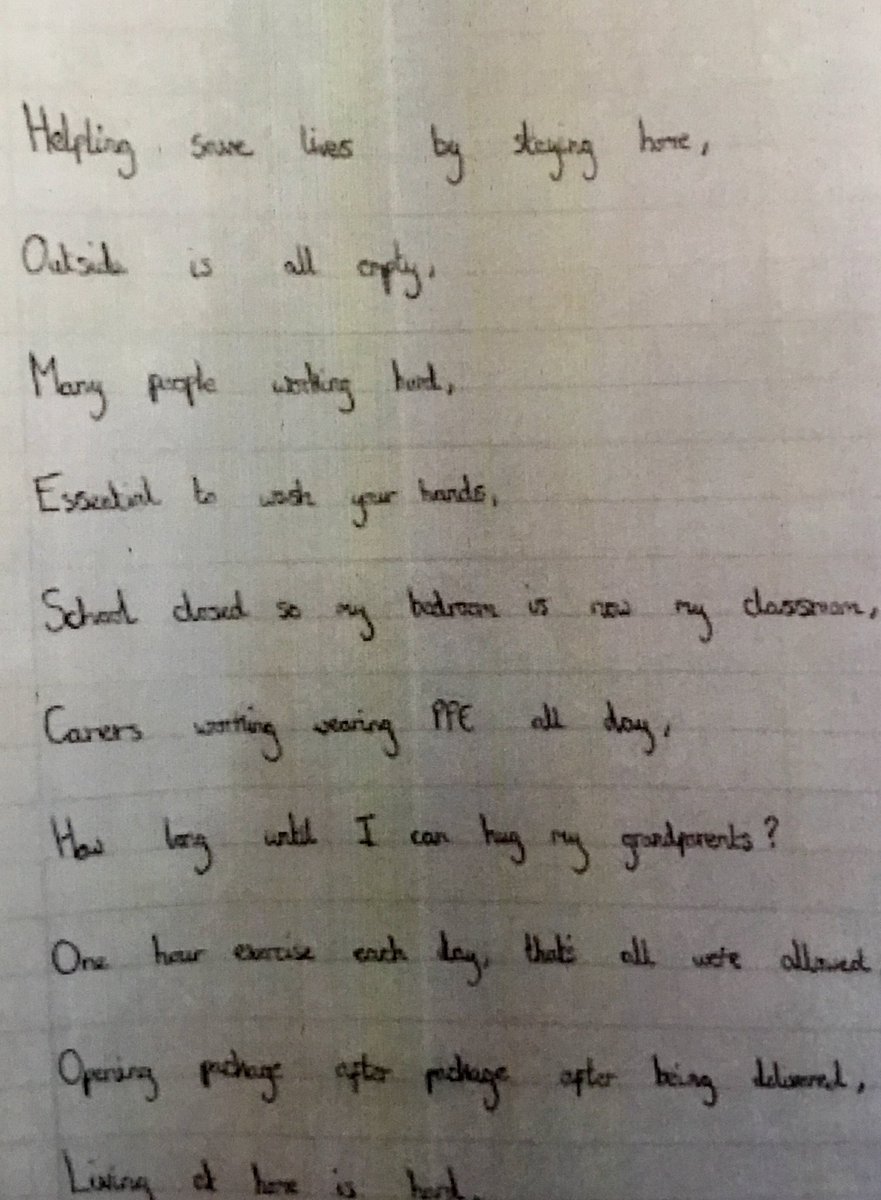 Helpling save lives by staying home,
Outside is all empty,
Many people working hard,
Essential to wash your hands,
School closed so my bedroom is now my classroom,
Carers working wearing PPE all day,
How long until I can hug my grandparents?
One hour exercise each day, that's all we're allowed
Opening package after package after being delivered,
Living at home is hard.